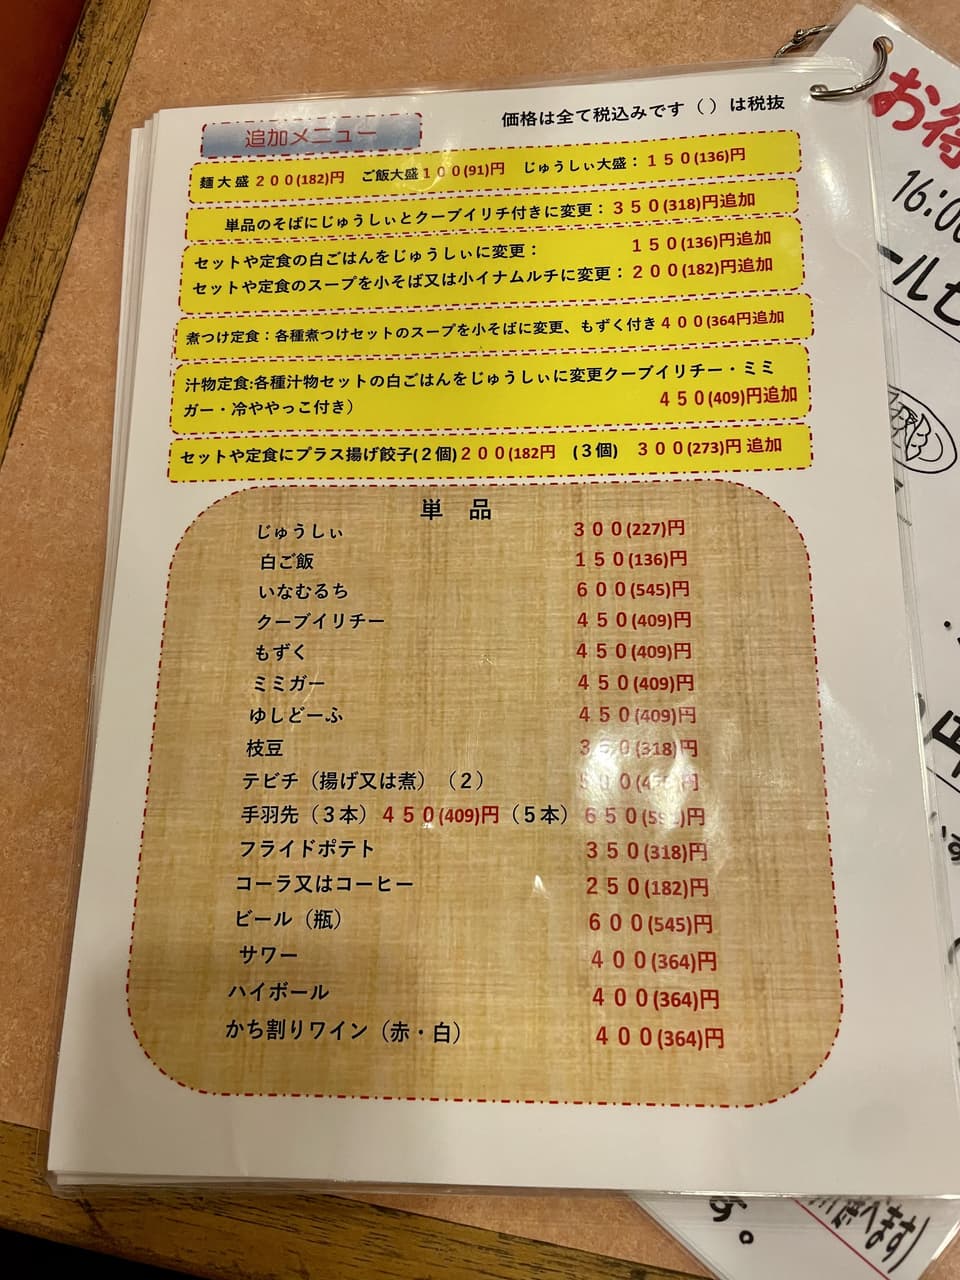 価格は全て税込みです（）は税抜
追加メニュー
麺大盛２００(182)円　ご飯大盛１００(91)円　じゅうしぃ大盛：１５０(136)円
単品のそばにじゅうしぃとクーブイリチ付きに変更：３５０(318)円追加
セットや定食の白ごはんをじゅうしぃに変更：　１５０(136)円追加
セットや定食のスープを小そば又は小イナムルチに変更：２００(182)円追加
煮つけ定食：各種煮つけセットのスープを小そばに変更、もずく付き４００(364円追加
汁物定食:各種汁物セットの白ごはんをじゅうしぃに変更クーブイリチー・ミミ
ガー・冷ややっこ付き）　４５０(409)円追加
セットや定食にプラス揚げ餃子(２個)２００(182円　(３個)　３００(273)円 追加
単　品
じゅうしぃ　３００(227)円
白ご飯　１５０(136)円
いなむるち　６００(545)円
クーブイリチー　４５０(409)円
もずく　４５０(409)円
ミミガー　４５０(409)円
ゆしどーふ　４５０(409)円
枝豆　３５０(318)円
テビチ（揚げ又は煮）（２）　円
手羽先（３本）４５０(409)円（５本）６５０円
フライドポテト　３５０(318)円
コーラ又はコーヒー　２５０(182)円
ビール（瓶）　６００(545)円
サワー　４００(364)円
ハイボール　４００(364)円
かち割りワイン（赤・白）　４００(364)円
お得
16:00
ールセ
円